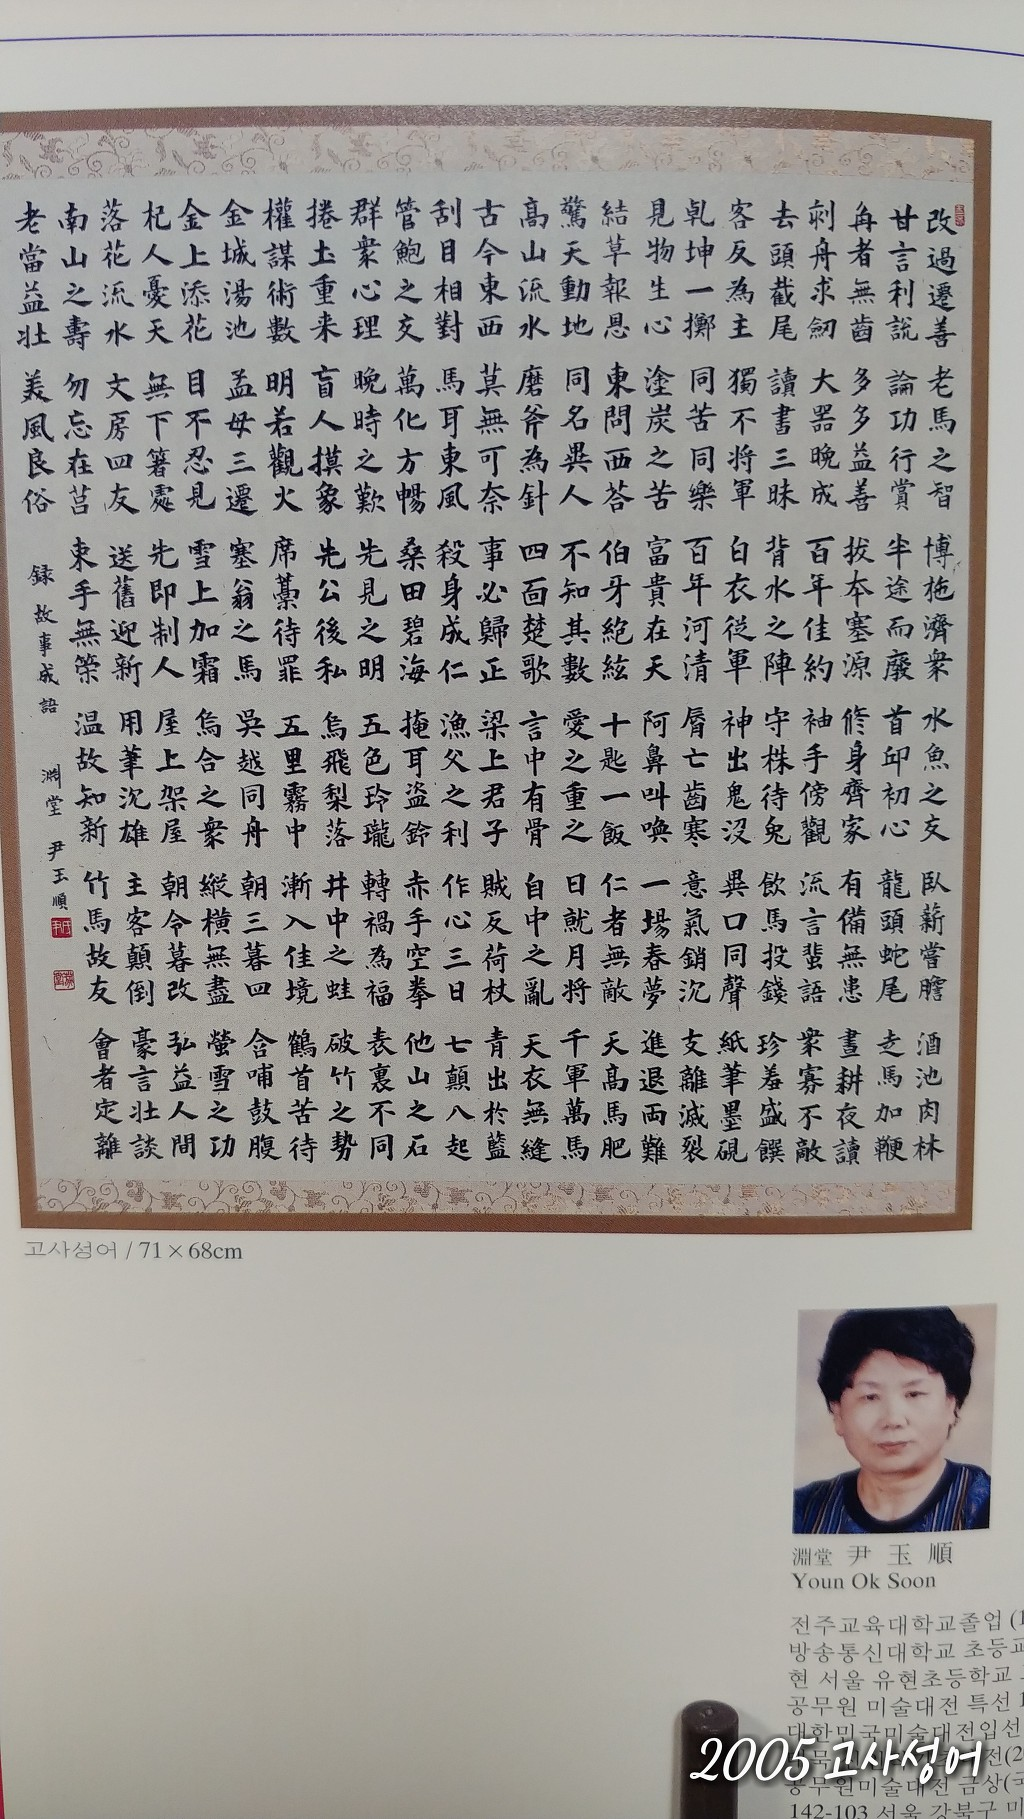 改過遷善 老馬之智 博施濟衆 水魚之交 臥薪嘗膽 酒池肉林
甘言利說 論功行賞 半途而廢 首邱初心 龍頭蛇尾 走馬加鞭
角者無齒 多多益善 拔本塞源 修身齊家 有備無患 晝耕夜讀
刻舟求劒 大器晚成 百年佳約 袖手傍觀 流言蜚語 衆寡不敵
去頭截尾 讀書三昧 背水之陣 守株待兔 飲馬投錢 珍羞盛饌
客反為主 獨不將軍 白衣從軍 神出鬼没 異口同聲 紙筆墨硯
乹坤一擲 同苦同樂 百年河清 脣亡齒寒 意氣銷沉 支離滅裂
見物生心 塗炭之苦 富貴在天 阿鼻叫喚 一場春夢 進退両難
結草報恩 東問西荅 伯牙絶絃 十匙一飯 仁者無敵 天高馬肥
驚天動地 同名異人 不知其數 愛之重之 日就月將 千軍萬馬
高山流水 磨斧為針 四面楚歌 言中有骨 自中之亂 天衣無縫
古今東西 莫無可奈 事必歸正 梁上君子 賊反荷杖 青出於藍
刮目相對 馬耳東風 殺身成仁 漁父之利 作心三日 七顛八起
管鮑之交 萬化方暢 桑田碧海 掩耳盜鈴 赤手空拳 他山之石
群衆心理 晚時之歎 先見之明 五色玲瓏 轉禍為福 表裏不同
捲土重来 盲人摸象 先公後私 烏飛梨落 井中之蛙 破竹之勢
權謀術數 明若觀火 席藁待罪 五里霧中 漸入佳境 鶴首苦待
金城湯池 孟母三遷 塞翁之馬 吳越同舟 朝三暮四 含哺鼓腹
金上添花 目不忍見 雪上加霜 烏合之衆 縱橫無盡 螢雪之功
杞人憂天 無下箸處 先即制人 屋上架屋 朝令暮改 弘益人間
落花流水 文房四友 送舊迎新 用筆沉雄 主客顛倒 豪言壯談
南山之壽 勿忘在莒 束手無策 温故知新 竹馬故友 會者定離
老當益壯 美風良俗 録故事成語 淵堂 尹玉順
고사성어 / 71×68cm
淵堂 尹玉順
Youn Ok Soon
전주교육대학교졸업 (1
방송통신대학교 초등교
현 서울 유현초등학교
공무원 미술대전 특선 1
대한민국미술대전입선
전(2
공무원미술대전 금상(국
142-103 서울 강북구 미
2005 고사성어